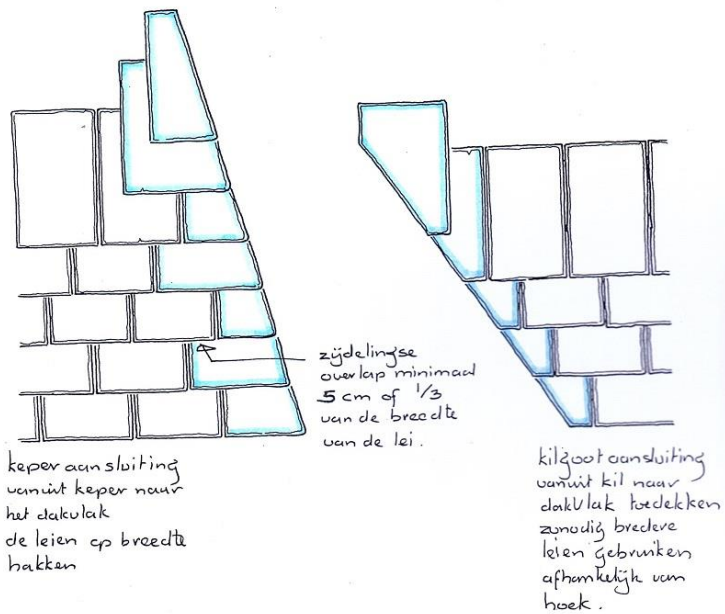 zijdelingse
overlap minimaal
5 cm of 1/3
van de breedte
van de lei.
keper aansluiting
vanuit keper naar
het dakvlak
de leien op breedte
hakken
kilgoot aansluiting
vanuit kil naar
dakvlak toedekken
zonodig bredere
leien gebruiken
afhankelijk van
hoek.